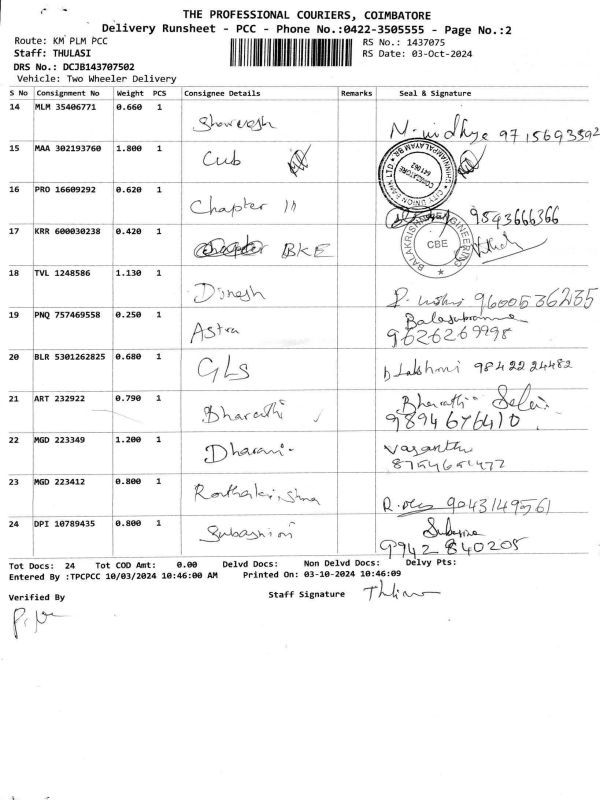 THE PROFESSIONAL COURIERS, COIMBATORE
Delivery Runsheet - PCC - Phone No.:0422-3505555 - Page No.:2
Route: KM PLM PCC
RS No.: 1437075
Staff: THULASI
RS Date: 03-Oct-2024
DRS No.: DCJB143707502
Vehicle: Two Wheeler Delivery
S No Consignment No Weight PCS Consignee Details Remarks Seal & Signature
14 MLM 35406771 0.660 1 N. nidhya 9715693592
15 MAA 302193760 1.800 1 Cub CITY UNION BANK LTD COIMBATORE 641 062
16 PRO 16609292 0.620 1 Chapter 111 9543666366
17 KRR 600030238 0.420 1 BKE BALAKRISHNA ENGINEERING CBE
18 TVL 1248586 1.130 1 Dinesh 9600536235
19 PNQ 757469558 0.250 1 Astra Balasubramani
9626269998
20 BLR 5301262825 0.680 1 GLS Lakshmi 9842224482
21 ART 232922 0.790 1 Bharathi Bharathi Selvi
9894676410
22 MGD 223349 1.200 1 Dharani Vasantha
8754651477
23 MGD 223412 0.800 1 9043149561
24 DPI 10789435 0.800 1 Subashini
9942 840205
Tot Docs: 24 Tot COD Amt: 0.00 Delvd Docs: Non Delvd Docs: Delvy Pts:
Entered By :TPCPCC 10/03/2024 10:46:00 AM Printed On: 03-10-2024 10:46:09
Verified By
Staff Signature